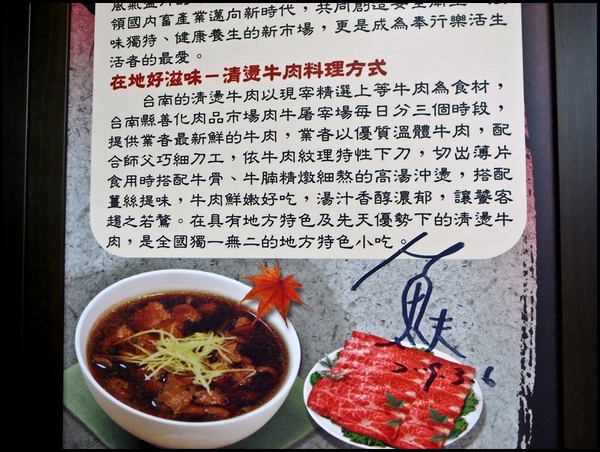 領國內畜產業邁向新時代，共同創造安全衛生、
味獨特、健康養生的新市場，更是成為奉行樂活生
活者的最愛。
在地好滋味－清燙牛肉料理方式
台南的清燙牛肉以現宰精選上等牛肉為食材，
台南縣善化肉品市場肉牛屠宰場每日分三個時段，
提供業者最新鮮的牛肉，業者以優質溫體牛肉，配
合師父巧細刀工，依牛肉紋理特性下刀，切出薄片
食用時搭配牛骨、牛腩精燉細熬的高湯沖燙，搭配
薑絲提味，牛肉鮮嫩好吃，湯汁香醇濃郁，讓饕客
趨之若鶩。在具有地方特色及先天優勢下的清燙牛
肉，是全國獨一無二的地方特色小吃。